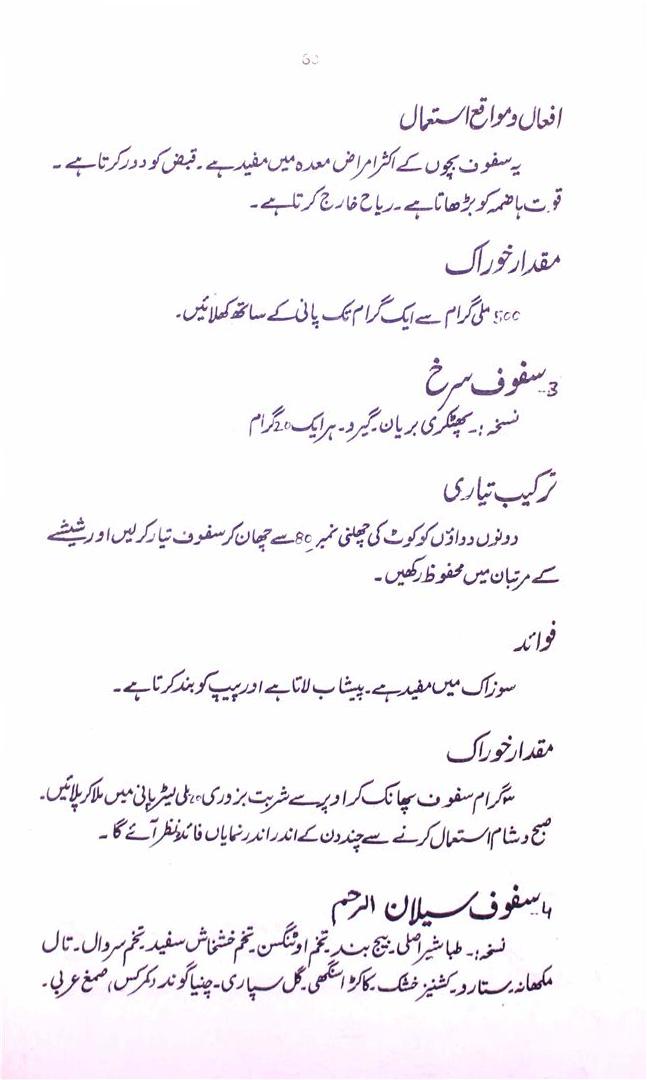 60
افعال و مواقع استعمال
یہ سفوف بچوں کے اکثر امراض معدہ میں مفید ہے۔ قبض کو دور کرتا ہے ۔
قوت ہاضمہ کو بڑھاتا ہے ۔ ریاح خارج کرتا ہے ۔
مقدار خوراک
500 ملی گرام سے ایک گرام تک پانی کے ساتھ کھلائیں۔
3۔ سفوف سرخ
نسخہ :۔ پھٹکری بریان ۔ گیرو ۔ ہر ایک 20 گرام
ترکیب تیاری
دونوں دواؤں کو کوٹ کی چھلنی نمبر 80 سے چھان کر سفوف تیار کر لیں اور شیشے
کے مرتبان میں محفوظ رکھیں ۔
فوائد
سوزاک میں مفید ہے ۔ پیشاب لاتا ہے اور پیپ کو بند کرتا ہے ۔
مقدار خوراک
۳ گرام سفوف پھانک کر اوپر سے شربت بزوری 20 ملی لیٹر پانی میں ملا کر پلائیں۔
صبح و شام استعمال کرنے سے چند دن کے اندر اندر نمایاں فائدہ نظر آئے گا ۔
4۔ سفوف سیلان الرحم
نسخہ :۔ طباشیر اصلی ۔ بیج بند ۔ تخم اوٹنگن ۔ تخم خشخاش سفید ۔ تخم سروالی ۔ تال
مکھانہ ۔ ستارو ۔ کشنیز خشک ۔ کاکڑا سنگھی ۔ گل سپاری ۔ چنیا گوند (کمرکس) صمغ عربی ۔